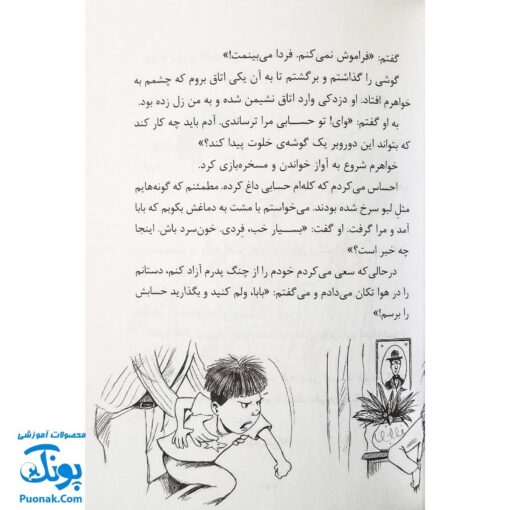 گفتم: «فراموش نمی‌کنم. فردا می‌بینمت!»
گوشی را گذاشتم و برگشتم تا به آن یکی اتاق بروم که چشمم به
خواهرم افتاد. او دزدکی وارد اتاق نشیمن شده و به من زل زده بود.
به او گفتم: «وای! تو حسابی مرا ترساندی. آدم باید چه کار کند
که بتواند این دوروبر یک گوشه‌ی خلوت پیدا کند؟»
خواهرم شروع به آواز خواندن و مسخره‌بازی کرد.
احساس می‌کردم که کله‌ام حسابی داغ کرده. مطمئنم که گونه‌هایم
مثل لبو سرخ شده بودند. می‌خواستم با مشت به دماغش بکوبم که بابا
آمد و مرا گرفت. او گفت: «بسیار خب، فردی. خون‌سرد باش. اینجا
چه خبر است؟»
درحالی‌که سعی می‌کردم خودم را از چنگ پدرم آزاد کنم، دستانم
را در هوا تکان می‌دادم و می‌گفتم: «بابا، ولم کنید و بگذارید حسابش
را برسم!»
محصولات آموزشی
پونک
Puonak.Com